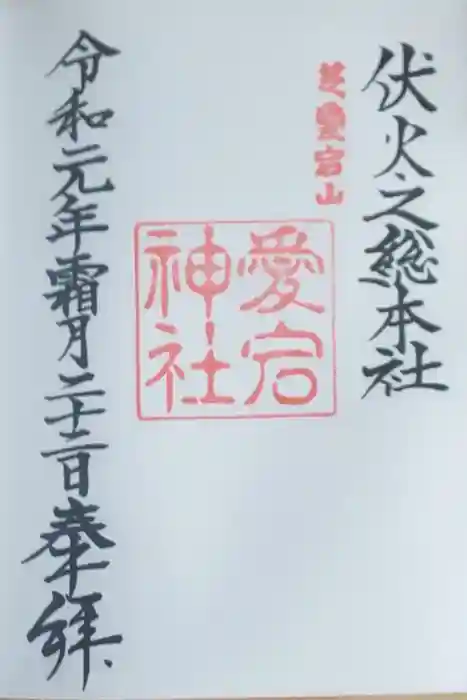 伏火之総本社
芝愛宕山
愛宕
神社
令和元年霜月二十二日奉拝